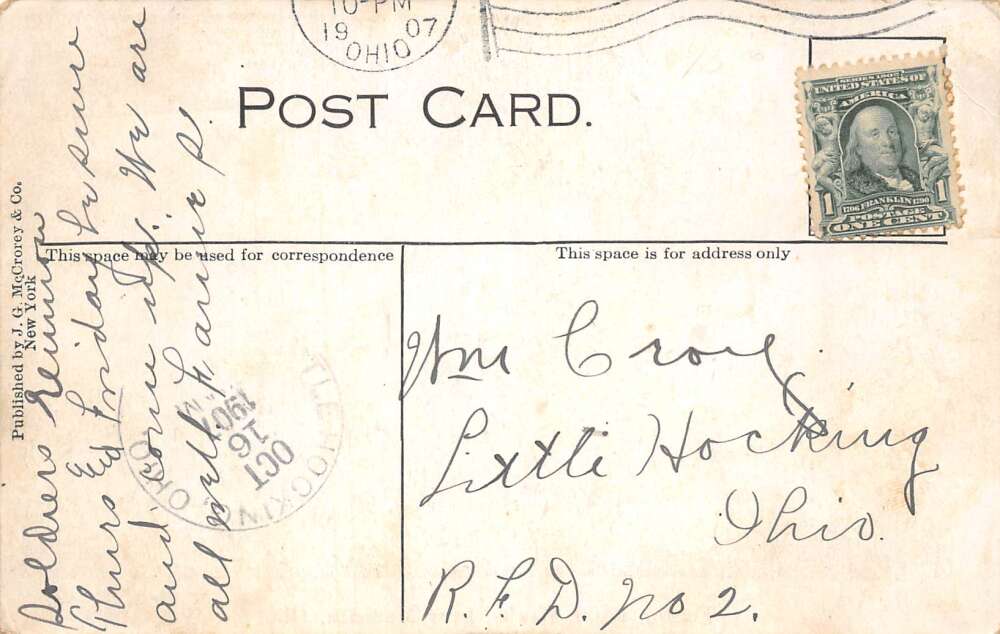 10-PM
19 07
OHIO
POST CARD.
SERIES 1902
UNITED STATES OF
AMERICA
1 1
1706 FRANKLIN 1790
POSTAGE
ONE CENT
Published by J. G. McCrorey & Co.
New York
This space may be used for correspondence
This space is for address only
Soldiers Reunion
Thurs & Friday be sure
and come up. We are
all well Fannie S.
TLE HOCKING, OHIO
OCT
16
1907
M
Wm
Little Hocking
Ohio.
R.F.D. No 2.